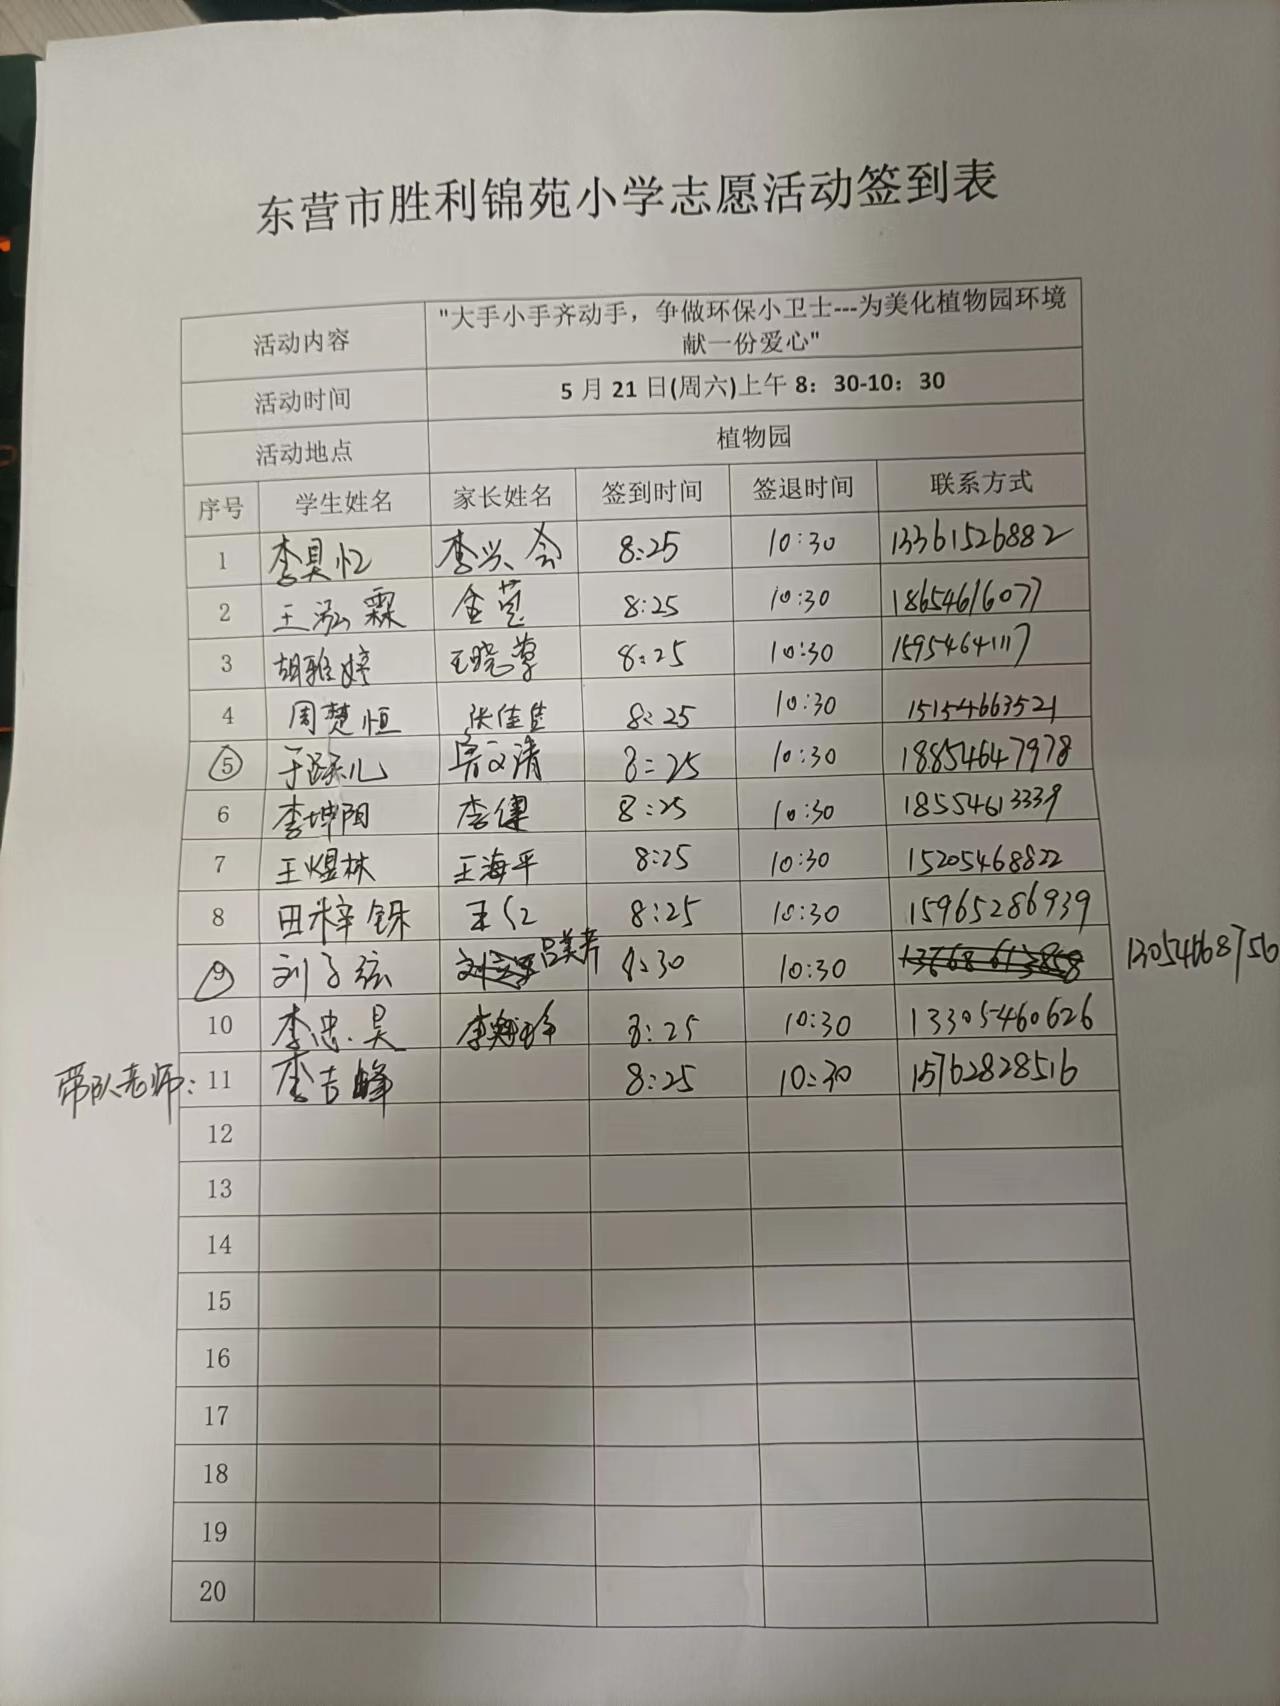 东营市胜利锦苑小学志愿活动签到表
活动内容 "大手小手齐动手，争做环保小卫士---为美化植物园环境
献一份爱心"
活动时间 5月21日(周六)上午8：30-10：30
活动地点 植物园
序号 学生姓名 家长姓名 签到时间 签退时间 联系方式
1 李昊忆 李兴会 8:25 10:30 13361526882
2 王泓霖 金莹 8:25 10:30 18654616077
3 胡雅婷 王晓 8:25 10:30 15954641117
4 周楚恒 张佳 8:25 10:30 15154663521
5 于 儿 文清 8:25 10:30 18854647978
6 李坤阳 李健 8:25 10:30 18554613339
7 王煜林 王海平 8:25 10:30 15205468822
8 田梓铄 王仁 8:25 10:30 15965286939
9 刘子弦 吕美芳 8:30 10:30 13054668756
10 李忠昊 李 8:25 10:30 13305460626
带队老师: 11 李吉峰 8:25 10:30 15762828516
12
13
14
15
16
17
18
19
20